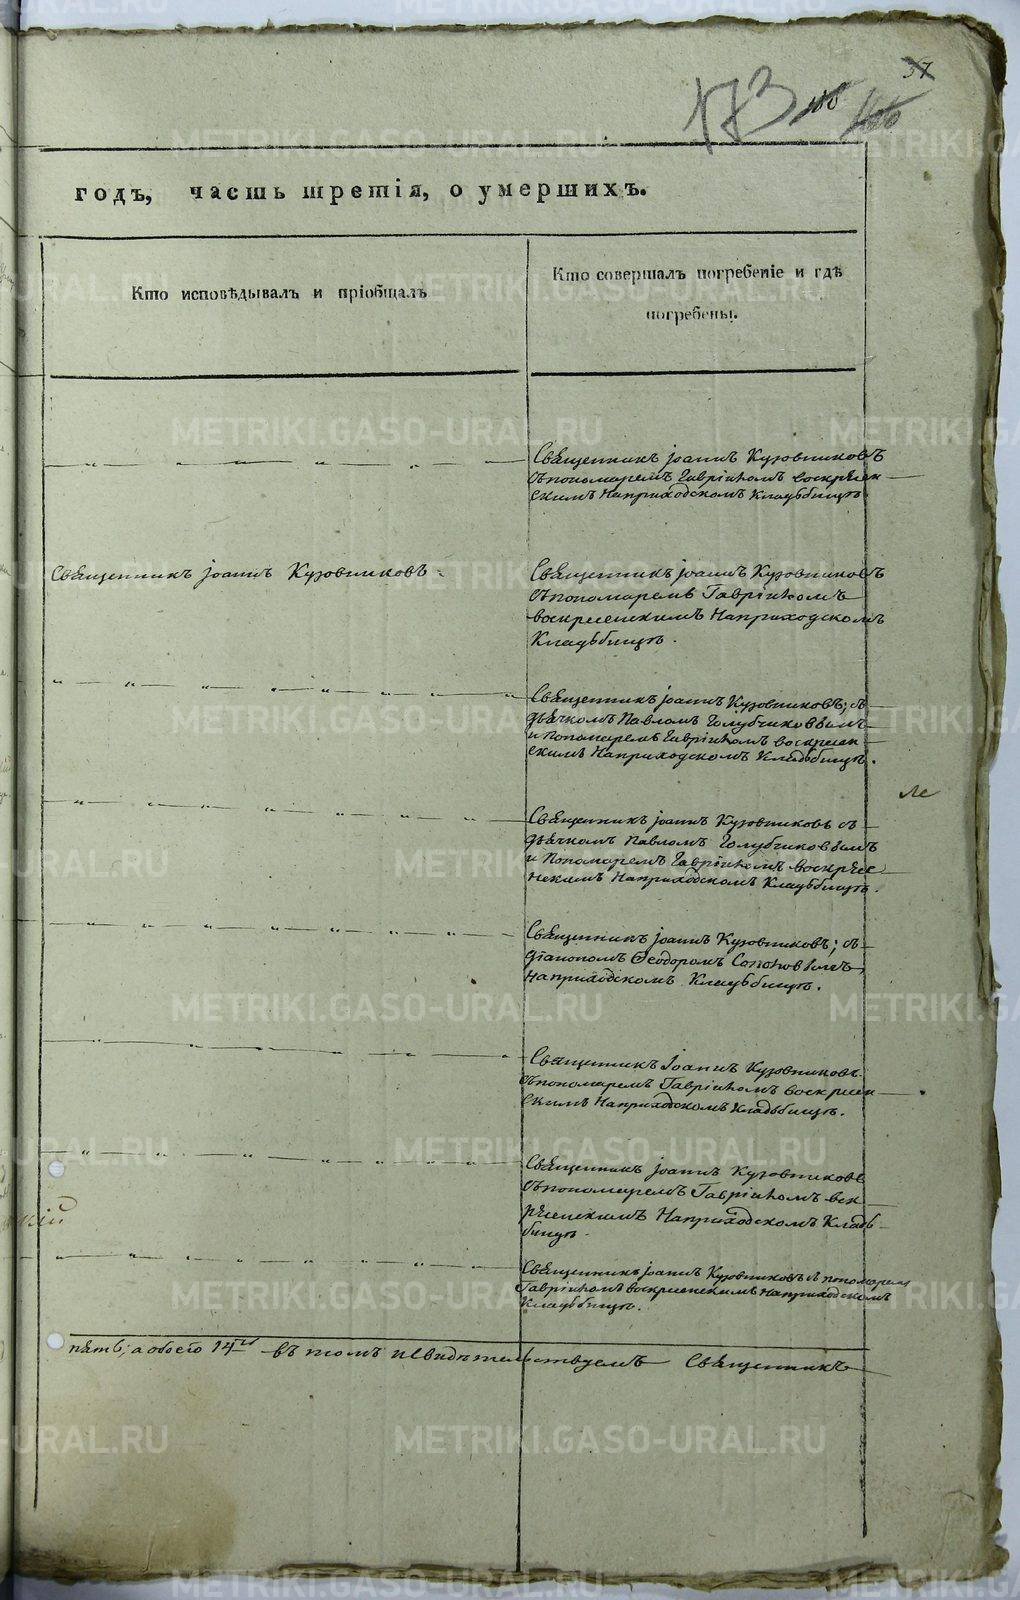 37
173 106 106
годъ, часть третія, о умершихъ.
Кто исповѣдывалъ и пріобщалъ
Кто совершалъ погребеніе и гдѣ
погребены.
Священникъ Іоаннъ Кузовниковъ
съ пономаремъ Гавріиломъ воскресен-
скимъ на приходскомъ кладбищѣ.
Священникъ Іоаннъ Кузовниковъ.
Священникъ Іоаннъ Кузовниковъ
съ пономаремъ Гавріиломъ
воскресенскимъ на приходскомъ
кладьбищѣ.
Священникъ Іоаннъ Кузовниковъ; съ
дьячкомъ Павломъ Голубчиковымъ
и пономаремъ Гавріиломъ воскресен-
скимъ на приходскомъ кладьбищѣ.
Священникъ Іоаннъ Кузовниковъ съ
дьячкомъ Павломъ Голубчиковымъ
и пономаремъ Гавріиломъ воскресе-
нскимъ на приходскомъ кладьбищѣ.
Священникъ Іоаннъ Кузовниковъ; съ
діакономъ Ѳеодоромъ
на приходскомъ кладьбищѣ.
Священникъ Іоаннъ Кузовниковъ
съ пономаремъ Гавріиломъ воскресен-
скимъ на приходскомъ кладьбищѣ.
Священникъ Іоаннъ Кузовниковъ
съ пономаремъ Гавріиломъ вск-
ресенскимъ на приходскомъ кладь-
бищѣ.
Священникъ Іоаннъ Кузовниковъ съ пономаремъ
Гавріиломъ воскресенскимъ на приходскомъ
кладьбищѣ.
пять; а обоего 14ть въ томъ и свидѣтельствуемъ Священникъ
METRIKI.GASO-URAL.RU